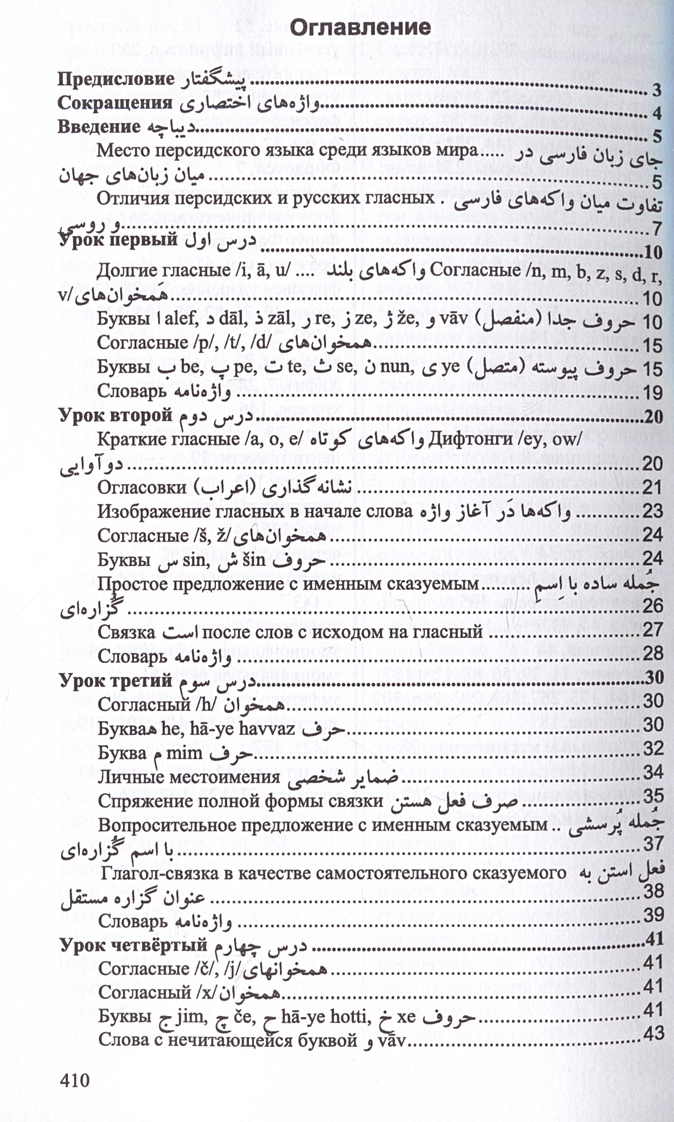 Оглавление
Предисловие پیشگفتار........3
Сокращения واژه‌های اختصاری........4
Введение دیباچه........5
Место персидского языка среди языков мира..... جای زبان فارسی در
میان زبان‌های جهان........5
Отличия персидских и русских гласных . تفاوت میان واکه‌های فارسی
و روسی........7
Урок первый درس اول........10
Долгие гласные /i, ā, u/ .... واکه‌های بلند Согласные /n, m, b, z, s, d, r,
v/ همخوان‌های........10
Буквы ا alef, د dāl, ذ zāl, ر re, ز ze, ژ že, و vāv حروف جدا (منفصل) 10
Согласные /p/, /t/, /d/ همخوان‌های........15
Буквы ب be, پ pe, ت te, ث se, ن nun, ی ye حروف پیوسته (متصل) 15
Словарь واژه‌نامه........19
Урок второй درس دوم........20
Краткие гласные /a, o, e/ واکه‌های کوتاه Дифтонги /ey, ow/
دوآوایی........20
Огласовки نشانه‌گذاری (اعراب)........21
Изображение гласных в начале слова واکه‌ها دَر آغاز واژه........23
Согласные /š, ž/ همخوان‌های........24
Буквы س sin, ش šin حروف........24
Простое предложение с именным сказуемым......... جُمله ساده با اِسمِ
گزاره‌ای........26
Связка است после слов с исходом на гласный........27
Словарь واژه‌نامه........28
Урок третий درس سوم........30
Согласный /h/ همخوان........30
Буква ه he, hā-ye havvaz حرف........30
Буква م mim حرف........32
Личные местоимения ضمایر شخصی........34
Спряжение полной формы связки صرف فعل هستن........35
Вопросительное предложение с именным сказуемым .. جُمله پُرسشی
با اسم گُزاره‌ای........37
Глагол-связка в качестве самостоятельного сказуемого فعل استن به
عنوان گزاره مستقل........38
Словарь واژه‌نامه........39
Урок четвёртый درس چهارم........41
Согласные /č/, /j/ همخوانهای........41
Согласный /x/ همخوان........41
Буквы ج jim, چ če, ح hā-ye hotti, خ xe حروف........41
Слова с нечитающейся буквой و vāv........43
410